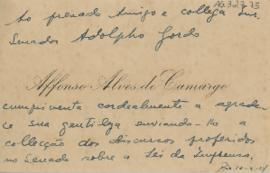 Ao prezado Amigo e collega Snr.
Senador Adolpho Gordo
Affonso Alves de Camargo
cumprimenta cordealmente a agrade-
ce sua gentileza enviando-lhe a
collecção dos discursos proferidos
no Senado sobre a Lei de Imprensa.